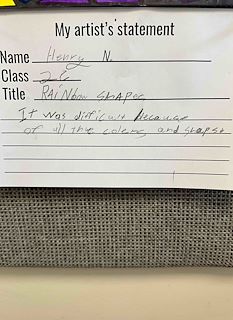 My artist's statement
Name Henry N.
Class 2G
Title RaiNbow sHAPes
It was difficult because
of all the colers and shapes